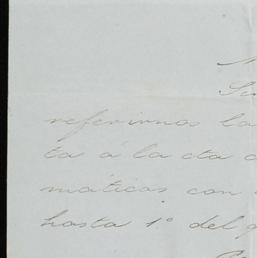 referirnos la
ta á la cta c
máticas con
hasta 1º del